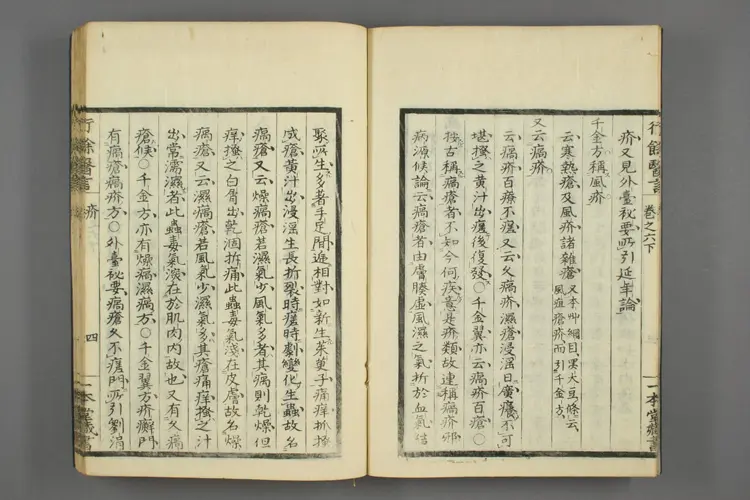 行餘醫言 卷之六下 一本堂藏書
疥又見外臺秘要所引延年論
千金方稱風疥
云寒熱瘡及風疥諸雜瘡 又本艸綱目黑大豆條云風疽瘡疥而引千金方
又云瘑疥
云瘑疥百療不瘥又云久瘑疥濕瘡浸淫日廣癢不可
堪搔之黃汁出瘥後復發○千金翼亦云瘑疥百瘡○
按古稱瘑瘡者不知今何疾意是疥類故連稱瘑疥邪
病源候論云瘑瘡者由膚腠虛風濕之氣折於血氣結
聚所生多著手足間遞相對如新生茱萸子痛痒抓搔
成瘡黃汁出浸淫生長拆裂時瘥時劇變化生蟲故名
瘑瘡又云燥瘑瘡若濕氣少風氣多者其瘑則乾燥但
痒搔之白屑出乾涸拆痛此蟲毒氣淺在皮膚故名燥
瘑瘡又云濕瘑瘡若風氣少濕氣多其瘡痛痒搔之汁
出常濡濕者此蟲毒氣深在於肌肉內故也又有久瘑
瘡候○千金方亦有燥瘑濕瘑方○千金翼方疥癬門
有瘑瘡瘑疥方○外臺秘要瘑瘡久不瘥門所引劉涓
行餘醫言 疥 四 一本堂藏書